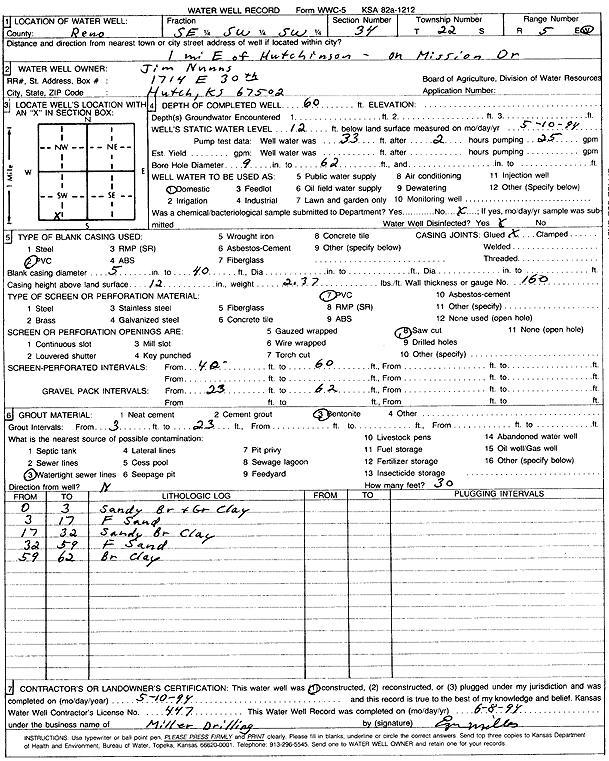 WATER WELL RECORD Form WWC-5 KSA 82a-1212
1 LOCATION OF WATER WELL: Fraction Section Number Township Number Range Number
County: Reno SE ¼ SW ¼ SW ¼ 34 T 22 S R 5 E/W
Distance and direction from nearest town or city street address of well if located within city?
1 mi E of Hutchinson - on Mission Dr
2 WATER WELL OWNER: Jim Nunns
RR#, St. Address, Box # : 1714 E 30th Board of Agriculture, Division of Water Resources
City, State, ZIP Code : Hutch, KS 67502 Application Number:
3 LOCATE WELL'S LOCATION WITH AN "X" IN SECTION BOX:
N
NW NE
W E
SW SE
X
S
1 Mile
4 DEPTH OF COMPLETED WELL 60 ft. ELEVATION:
Depth(s) Groundwater Encountered 1 ft. 2 ft. 3 ft.
WELL'S STATIC WATER LEVEL 12 ft. below land surface measured on mo/day/yr 5-10-94
Pump test data: Well water was 33 ft. after 2 hours pumping 25 gpm
Est. Yield gpm: Well water was ft. after hours pumping gpm
Bore Hole Diameter 9 in. to 62 ft., and in. to ft.
WELL WATER TO BE USED AS: 5 Public water supply 8 Air conditioning 11 Injection well
1 Domestic 3 Feedlot 6 Oil field water supply 9 Dewatering 12 Other (Specify below)
2 Irrigation 4 Industrial 7 Lawn and garden only 10 Monitoring well
Was a chemical/bacteriological sample submitted to Department? Yes No X ; If yes, mo/day/yr sample was sub-
mitted Water Well Disinfected? Yes X No
5 TYPE OF BLANK CASING USED: 5 Wrought iron 8 Concrete tile CASING JOINTS: Glued X Clamped
1 Steel 3 RMP (SR) 6 Asbestos-Cement 9 Other (specify below) Welded
2 PVC 4 ABS 7 Fiberglass Threaded
Blank casing diameter 5 in. to 40 ft., Dia in. to ft., Dia in. to ft.
Casing height above land surface 12 in., weight 2.37 lbs./ft. Wall thickness or gauge No. 160
TYPE OF SCREEN OR PERFORATION MATERIAL: 7 PVC 10 Asbestos-cement
1 Steel 3 Stainless steel 5 Fiberglass 8 RMP (SR) 11 Other (specify)
2 Brass 4 Galvanized steel 6 Concrete tile 9 ABS 12 None used (open hole)
SCREEN OR PERFORATION OPENINGS ARE: 5 Gauzed wrapped 8 Saw cut 11 None (open hole)
1 Continuous slot 3 Mill slot 6 Wire wrapped 9 Drilled holes
2 Louvered shutter 4 Key punched 7 Torch cut 10 Other (specify)
SCREEN-PERFORATED INTERVALS: From 40 ft. to 60 ft., From ft. to ft.
From ft. to ft., From ft. to ft.
GRAVEL PACK INTERVALS: From 23 ft. to 62 ft., From ft. to ft.
From ft. to ft., From ft. to ft.
6 GROUT MATERIAL: 1 Neat cement 2 Cement grout 3 Bentonite 4 Other
Grout Intervals: From 3 ft. to 23 ft., From ft. to ft., From ft. to ft.
What is the nearest source of possible contamination: 10 Livestock pens 14 Abandoned water well
1 Septic tank 4 Lateral lines 7 Pit privy 11 Fuel storage 15 Oil well/Gas well
2 Sewer lines 5 Cess pool 8 Sewage lagoon 12 Fertilizer storage 16 Other (specify below)
3 Watertight sewer lines 6 Seepage pit 9 Feedyard 13 Insecticide storage
Direction from well? N How many feet? 30
FROM TO LITHOLOGIC LOG FROM TO PLUGGING INTERVALS
0 3 Sandy Br + Gr Clay
3 17 F Sand
17 32 Sandy Br Clay
32 59 F Sand
59 62 Br Clay
7 CONTRACTOR'S OR LANDOWNER'S CERTIFICATION: This water well was (1) constructed, (2) reconstructed, or (3) plugged under my jurisdiction and was
completed on (mo/day/year) 5-10-94 and this record is true to the best of my knowledge and belief. Kansas
Water Well Contractor's License No. 447 This Water Well Record was completed on (mo/day/yr) 6-8-94
under the business name of Miller Drilling by (signature)
INSTRUCTIONS: Use typewriter or ball point pen. PLEASE PRESS FIRMLY and PRINT clearly. Please fill in blanks, underline or circle the correct answers. Send top three copies to Kansas Department
of Health and Environment, Bureau of Water, Topeka, Kansas 66620-0001. Telephone: 913-296-5545. Send one to WATER WELL OWNER and retain one for your records.